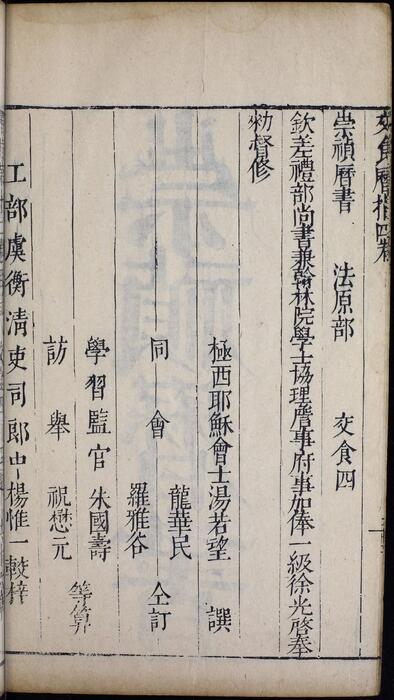 交食曆指四卷
崇禎曆書　法原部　交食四
欽差禮部尚書兼翰林院學士協理詹事府事加俸一級徐光啓奉
勑督修
極西耶穌會士湯若望　譔
龍華民
同會　仝訂
羅雅谷
學習監官　朱國壽
等算
訪舉　祝懋元
工部虞衡清吏司郎中楊惟一㪅梓